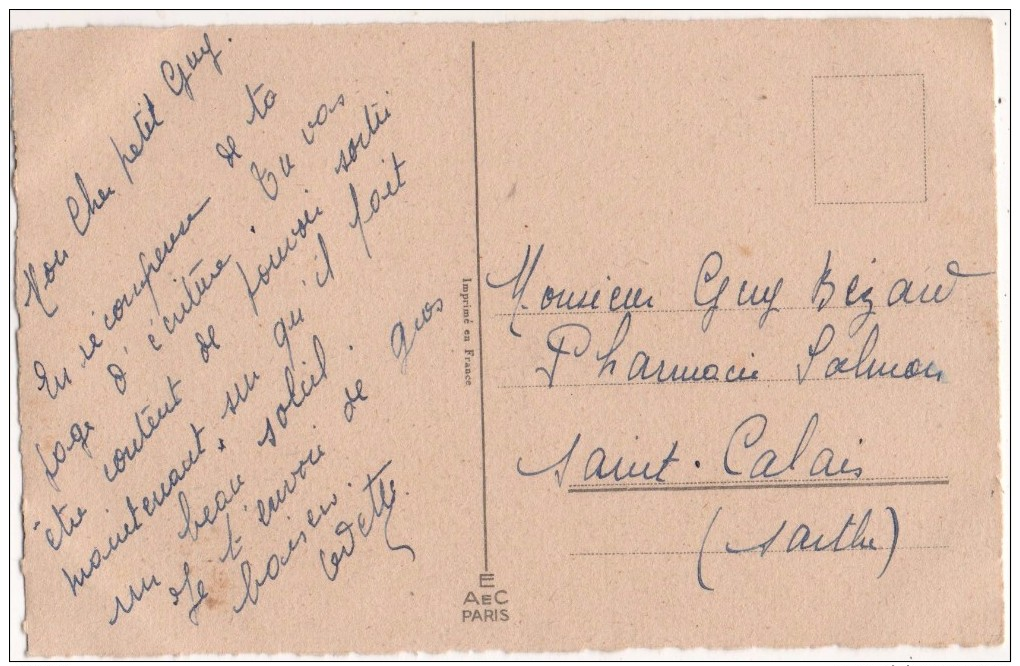 Mon cher petit Guy.
En récompense de ta
page d'écriture. Tu vas
être content de pouvoir sortir
maintenant, qu'il fait
un beau soleil.
Je t'envoie de gros
baisers.
Imprimé en France
E
AEC
PARIS
Monsieur Guy Bézard
Pharmacie Salmon
Saint-Calais
(Sarthe)